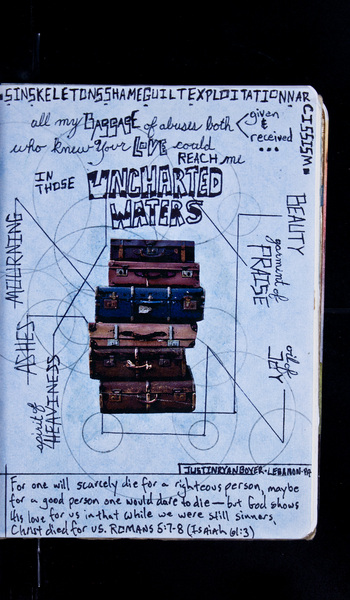 SINSKELETONSSHAMEGUILTEXPLOITATIONNARCISSISM
all my BAGGAGE of abuses both given & received ...
who knew your LOVE could REACH me
IN THOSE UNCHARTED WATERS
MOURNING
ASHES
spirit of HEAVINESS
BEAUTY
garment of PRAISE
oil of JOY
JUSTINRYANBOYER-LEBANON-PA
For one will scarcely die for a righteous person, maybe
for a good person one would dare to die-but God shows
His love for us in that while we were still sinners,
Christ died for us. ROMANS 5:7-8 (Isaiah 61:3)